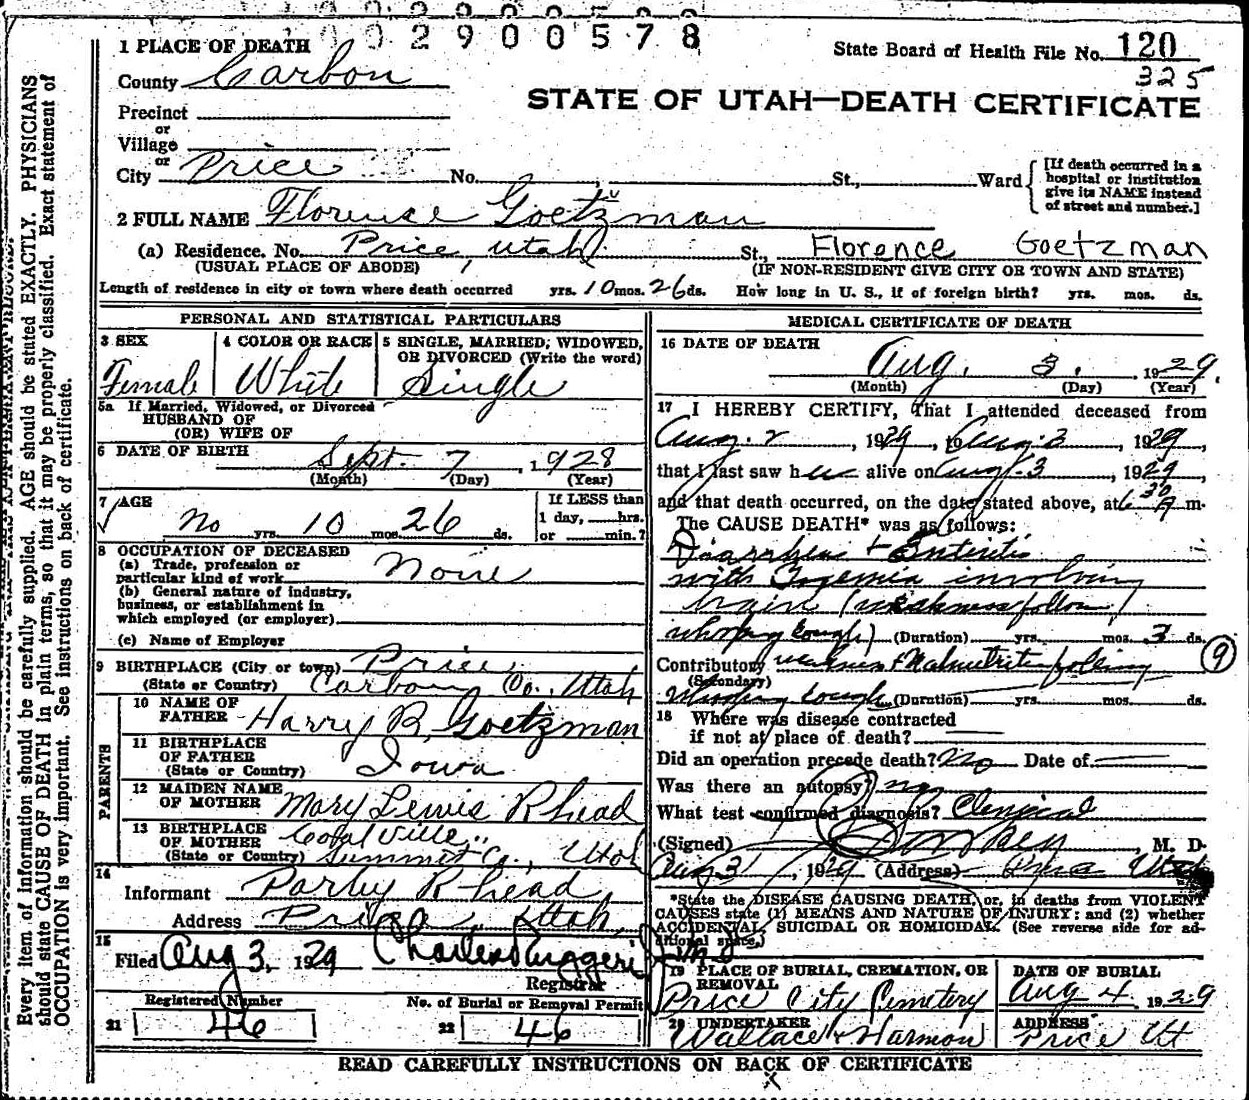 0 0 2 9 0 0 5 7 8
1 PLACE OF DEATH
State Board of Health File No. 120
325
County Carbon
STATE OF UTAH—DEATH CERTIFICATE
Precinct
or
Village
or
City Price No. , St., Ward
[If death occurred in a
hospital or institution
give its NAME instead
of street and number.]
2 FULL NAME Florence Goetzman
(a) Residence. No. Price, Utah St., Florence Goetzman
(USUAL PLACE OF ABODE) (IF NON-RESIDENT GIVE CITY OR TOWN AND STATE)
Length of residence in city or town where death occurred yrs. 10 mos. 26 ds. How long in U. S., if of foreign birth? yrs. mos. ds.
PERSONAL AND STATISTICAL PARTICULARS
3 SEX
Female
4 COLOR OR RACE
White
5 SINGLE, MARRIED, WIDOWED,
OR DIVORCED (Write the word)
Single
5a If Married, Widowed, or Divorced
HUSBAND OF
(OR) WIFE OF
6 DATE OF BIRTH Sept. 7, 1928
(Month) (Day) (Year)
7 AGE
No yrs. 10 mos. 26 ds.
If LESS than
1 day, hrs.
or min.?
8 OCCUPATION OF DECEASED
(a) Trade, profession or
particular kind of work None
(b) General nature of industry,
business, or establishment in
which employed (or employer)
(c) Name of Employer
9 BIRTHPLACE (City or town) Price,
(State or Country) Carbon Co., Utah
PARENTS
10 NAME OF
FATHER Harry R. Goetzman
11 BIRTHPLACE
OF FATHER
(State or Country) Iowa
12 MAIDEN NAME
OF MOTHER Mary Lewis Rhead
13 BIRTHPLACE
OF MOTHER Coalville,
(State or Country) Summit Co., Utah
14
Informant Parley Rhead
Address Price, Utah,
15
Filed Aug 3, 1929 Charles Ruggeri
Registrar
Registered Number
21 46
No. of Burial or Removal Permit
22 46
MEDICAL CERTIFICATE OF DEATH
16 DATE OF DEATH
Aug. 3. , 1929.
(Month) (Day) (Year)
17 I HEREBY CERTIFY, That I attended deceased from
Aug. 2, 1929, to Aug. 3 1929,
that I last saw her alive on Aug. 3 1929
and that death occurred, on the date stated above, at 6 30 A m.
The CAUSE DEATH* was as follows:
Diarrhea + Enteritis
with Toxemia involving
brain (weakness follow
whooping cough) (Duration) yrs. mos. 3 ds.
Contributory weakness + Malnutrition following
(Secondary)
Whooping Cough (Duration) yrs. mos. ds.
9
18 Where was disease contracted
if not at place of death?
Did an operation precede death? No Date of
Was there an autopsy? no
What test confirmed diagnosis? Clinical
(Signed) , M. D.
Aug 3, 1929 (Address) Price Utah
*State the DISEASE CAUSING DEATH, or, in deaths from VIOLENT
CAUSES state (1) MEANS AND NATURE OF INJURY: and (2) whether
ACCIDENTAL, SUICIDAL OR HOMICIDAL. (See reverse side for ad-
ditional space.)
19 PLACE OF BURIAL, CREMATION, OR
REMOVAL
Price City Cemetery
DATE OF BURIAL
Aug 4 1929
20 UNDERTAKER
Wallace + Harmon
ADDRESS
Price Ut
READ CAREFULLY INSTRUCTIONS ON BACK OF CERTIFICATE
x
Every item of information should be carefully supplied. AGE should be stated EXACTLY. PHYSICIANS
should state CAUSE OF DEATH in plain terms, so that it may be properly classified. Exact statement of
OCCUPATION is very important. See instructions on back of certificate.